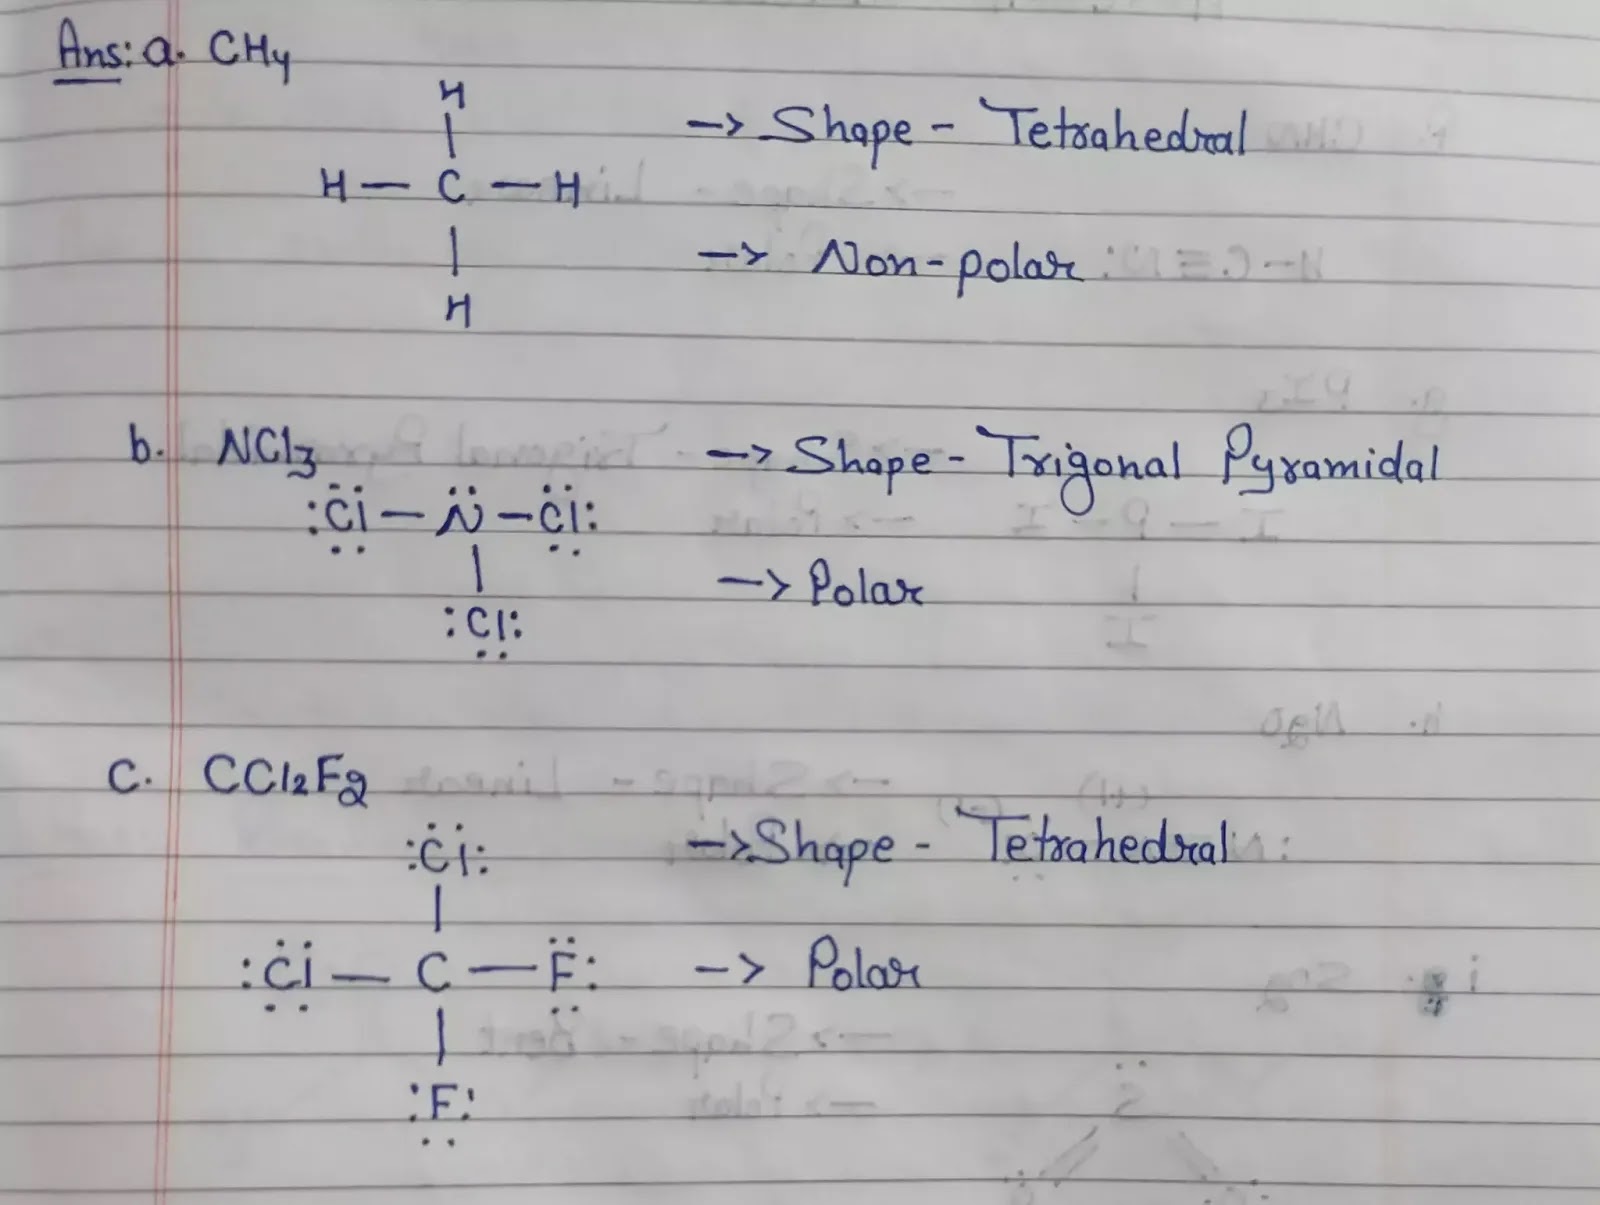 Ans: a. CH4
H
→ Shape - Tetrahedral
H — C — H
→ Non-polar
H
b. NCl3 → Shape - Trigonal Pyramidal
:Cl — N — Cl:
→ Polar
:Cl:
c. CCl2F2
:Cl: → Shape - Tetrahedral
:Cl — C — F: → Polar
:F: